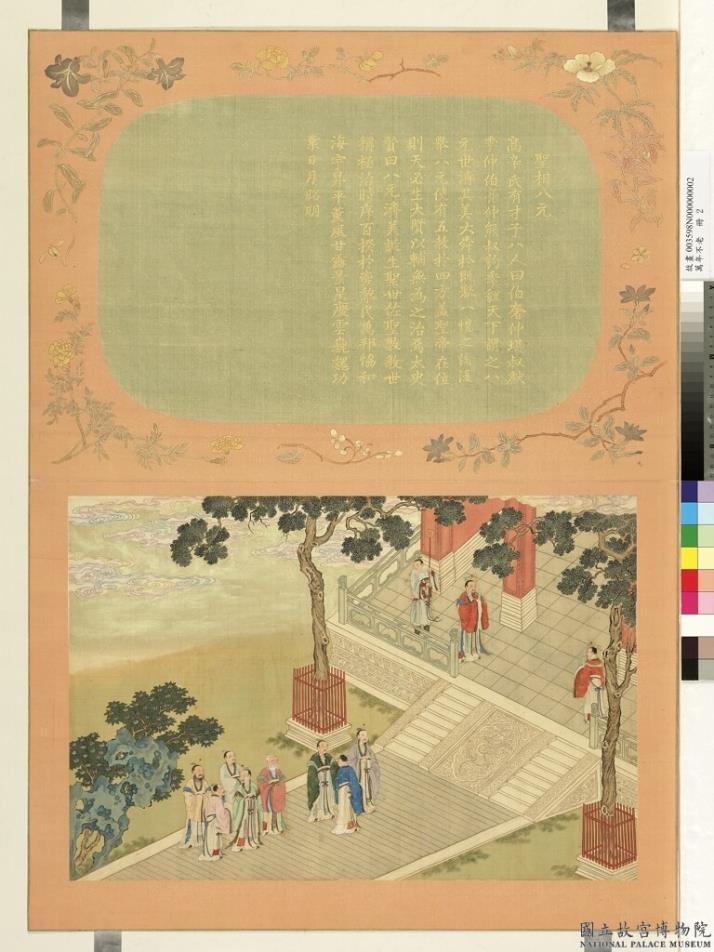 聖相八元
高辛氏有才子八人曰伯奮仲堪叔獻
季仲伯虎仲熊叔豹季貍天下謂之八
元世濟其美大舜於既舉八愷之後復
舉八元使布五教於四方蓋聖帝在位
則天必生大賢以輔無為之治焉太史
贊曰八元濟美誕生聖世佐聖敷教世
極治時序百揆於變黎民萬邦協和
海宇昇平薰風甘露景星慶雲巍巍功
業日月昭明
故畫 003598N000000002
萬年不老 冊 2
國立故宮博物院
NATIONAL PALACE MUSEUM